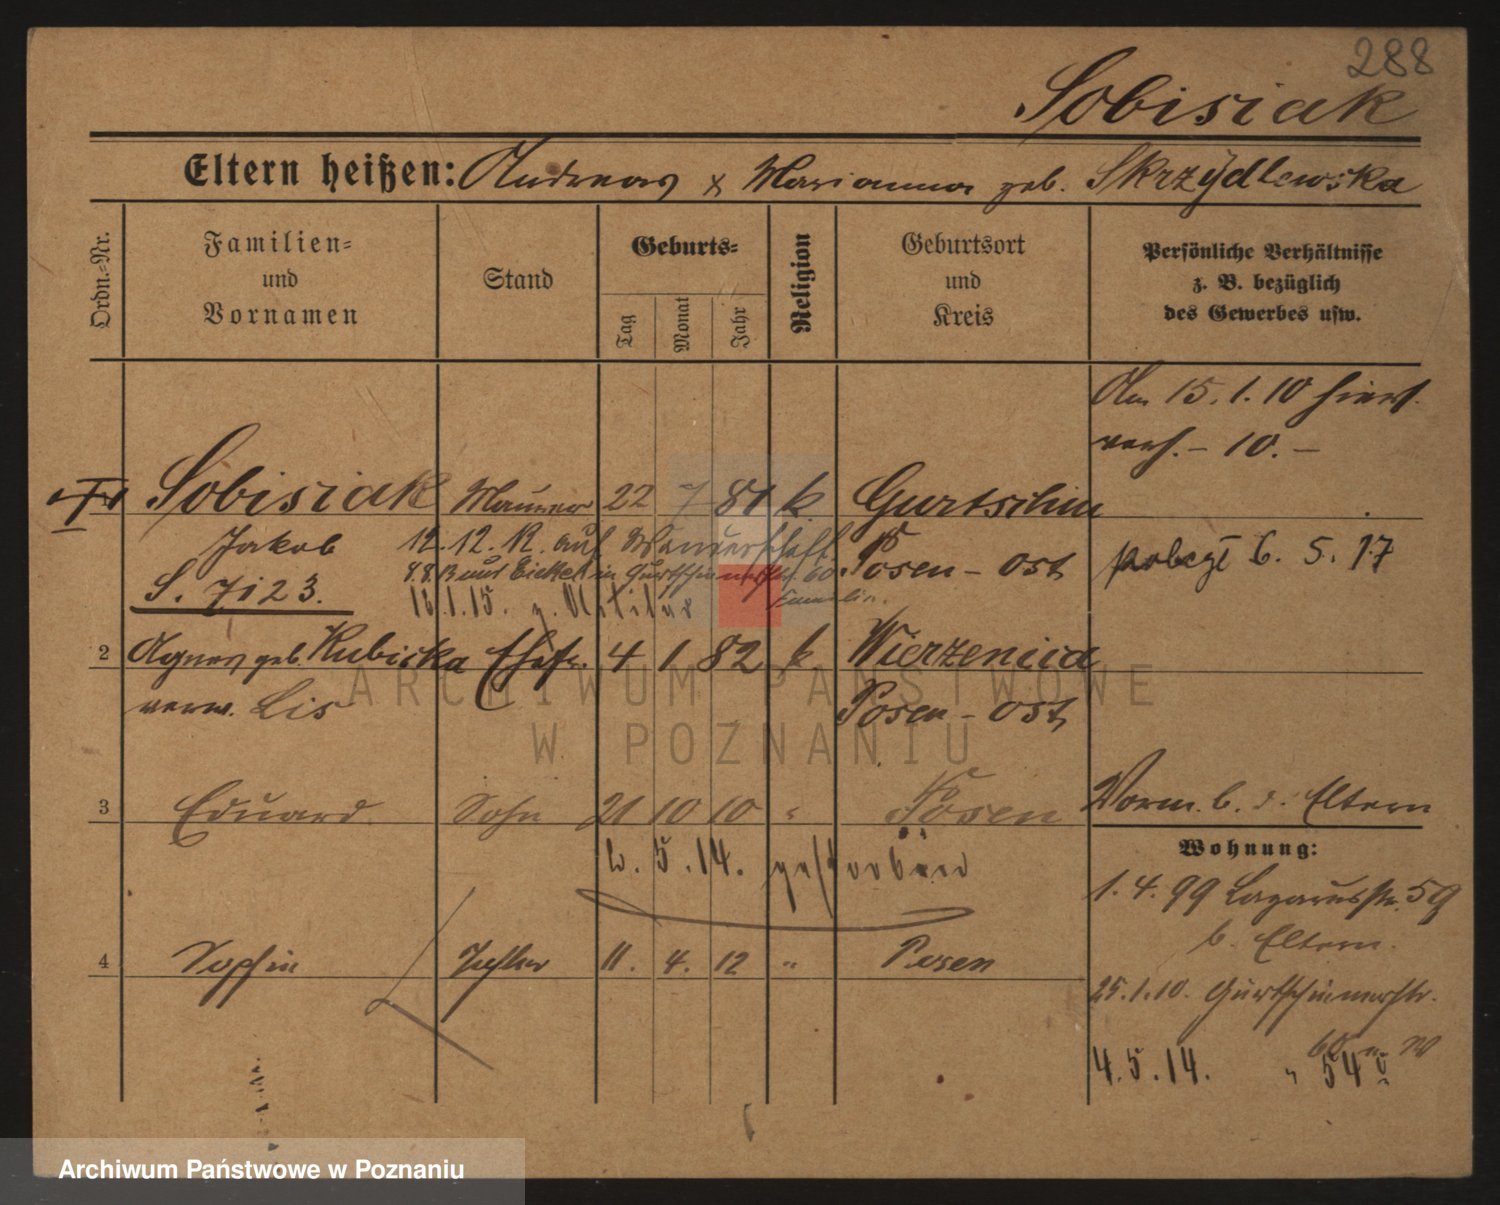 288
Sobisiak
Eltern heißen: Andreas & Marianna geb. Skrzydlewska
Ordn.=Nr.
Familien=
und
Vornamen
Stand
Geburts=
Tag
Monat
Jahr
Religion
Geburtsort
und
Kreis
Persönliche Verhältnisse
z. B. bezüglich
des Gewerbes usw.
Am 15. 1. 10 hier
verh. – 10. –
Sobisiak Maurer 22 7 81 k Gurtschin
Jakob 12. 12. 12. auf Wanderschaft Posen – Ost
S. 7123. 16. 1. 15. z. Artiller
6. 5. 17
2 Agnes geb. Kubicka Ehefr. 4 1 82 k Wierzenica
verw. Lis Posen – Ost
3 Eduard Sohn 21 10 10 " Posen
Vorm. b. d. Eltern
5. 14. gestorben
Wohnung:
1. 4. 99 Lazarusstr. 59
b. Eltern.
4 Sophie Tochter 11. 4. 12 " Posen
25. 1. 10. Gurtschinerstr.
60
4. 5. 14. " 54
ARCHIWUM PAŃSTWOWE
W POZNANIU
Archiwum Państwowe w Poznaniu